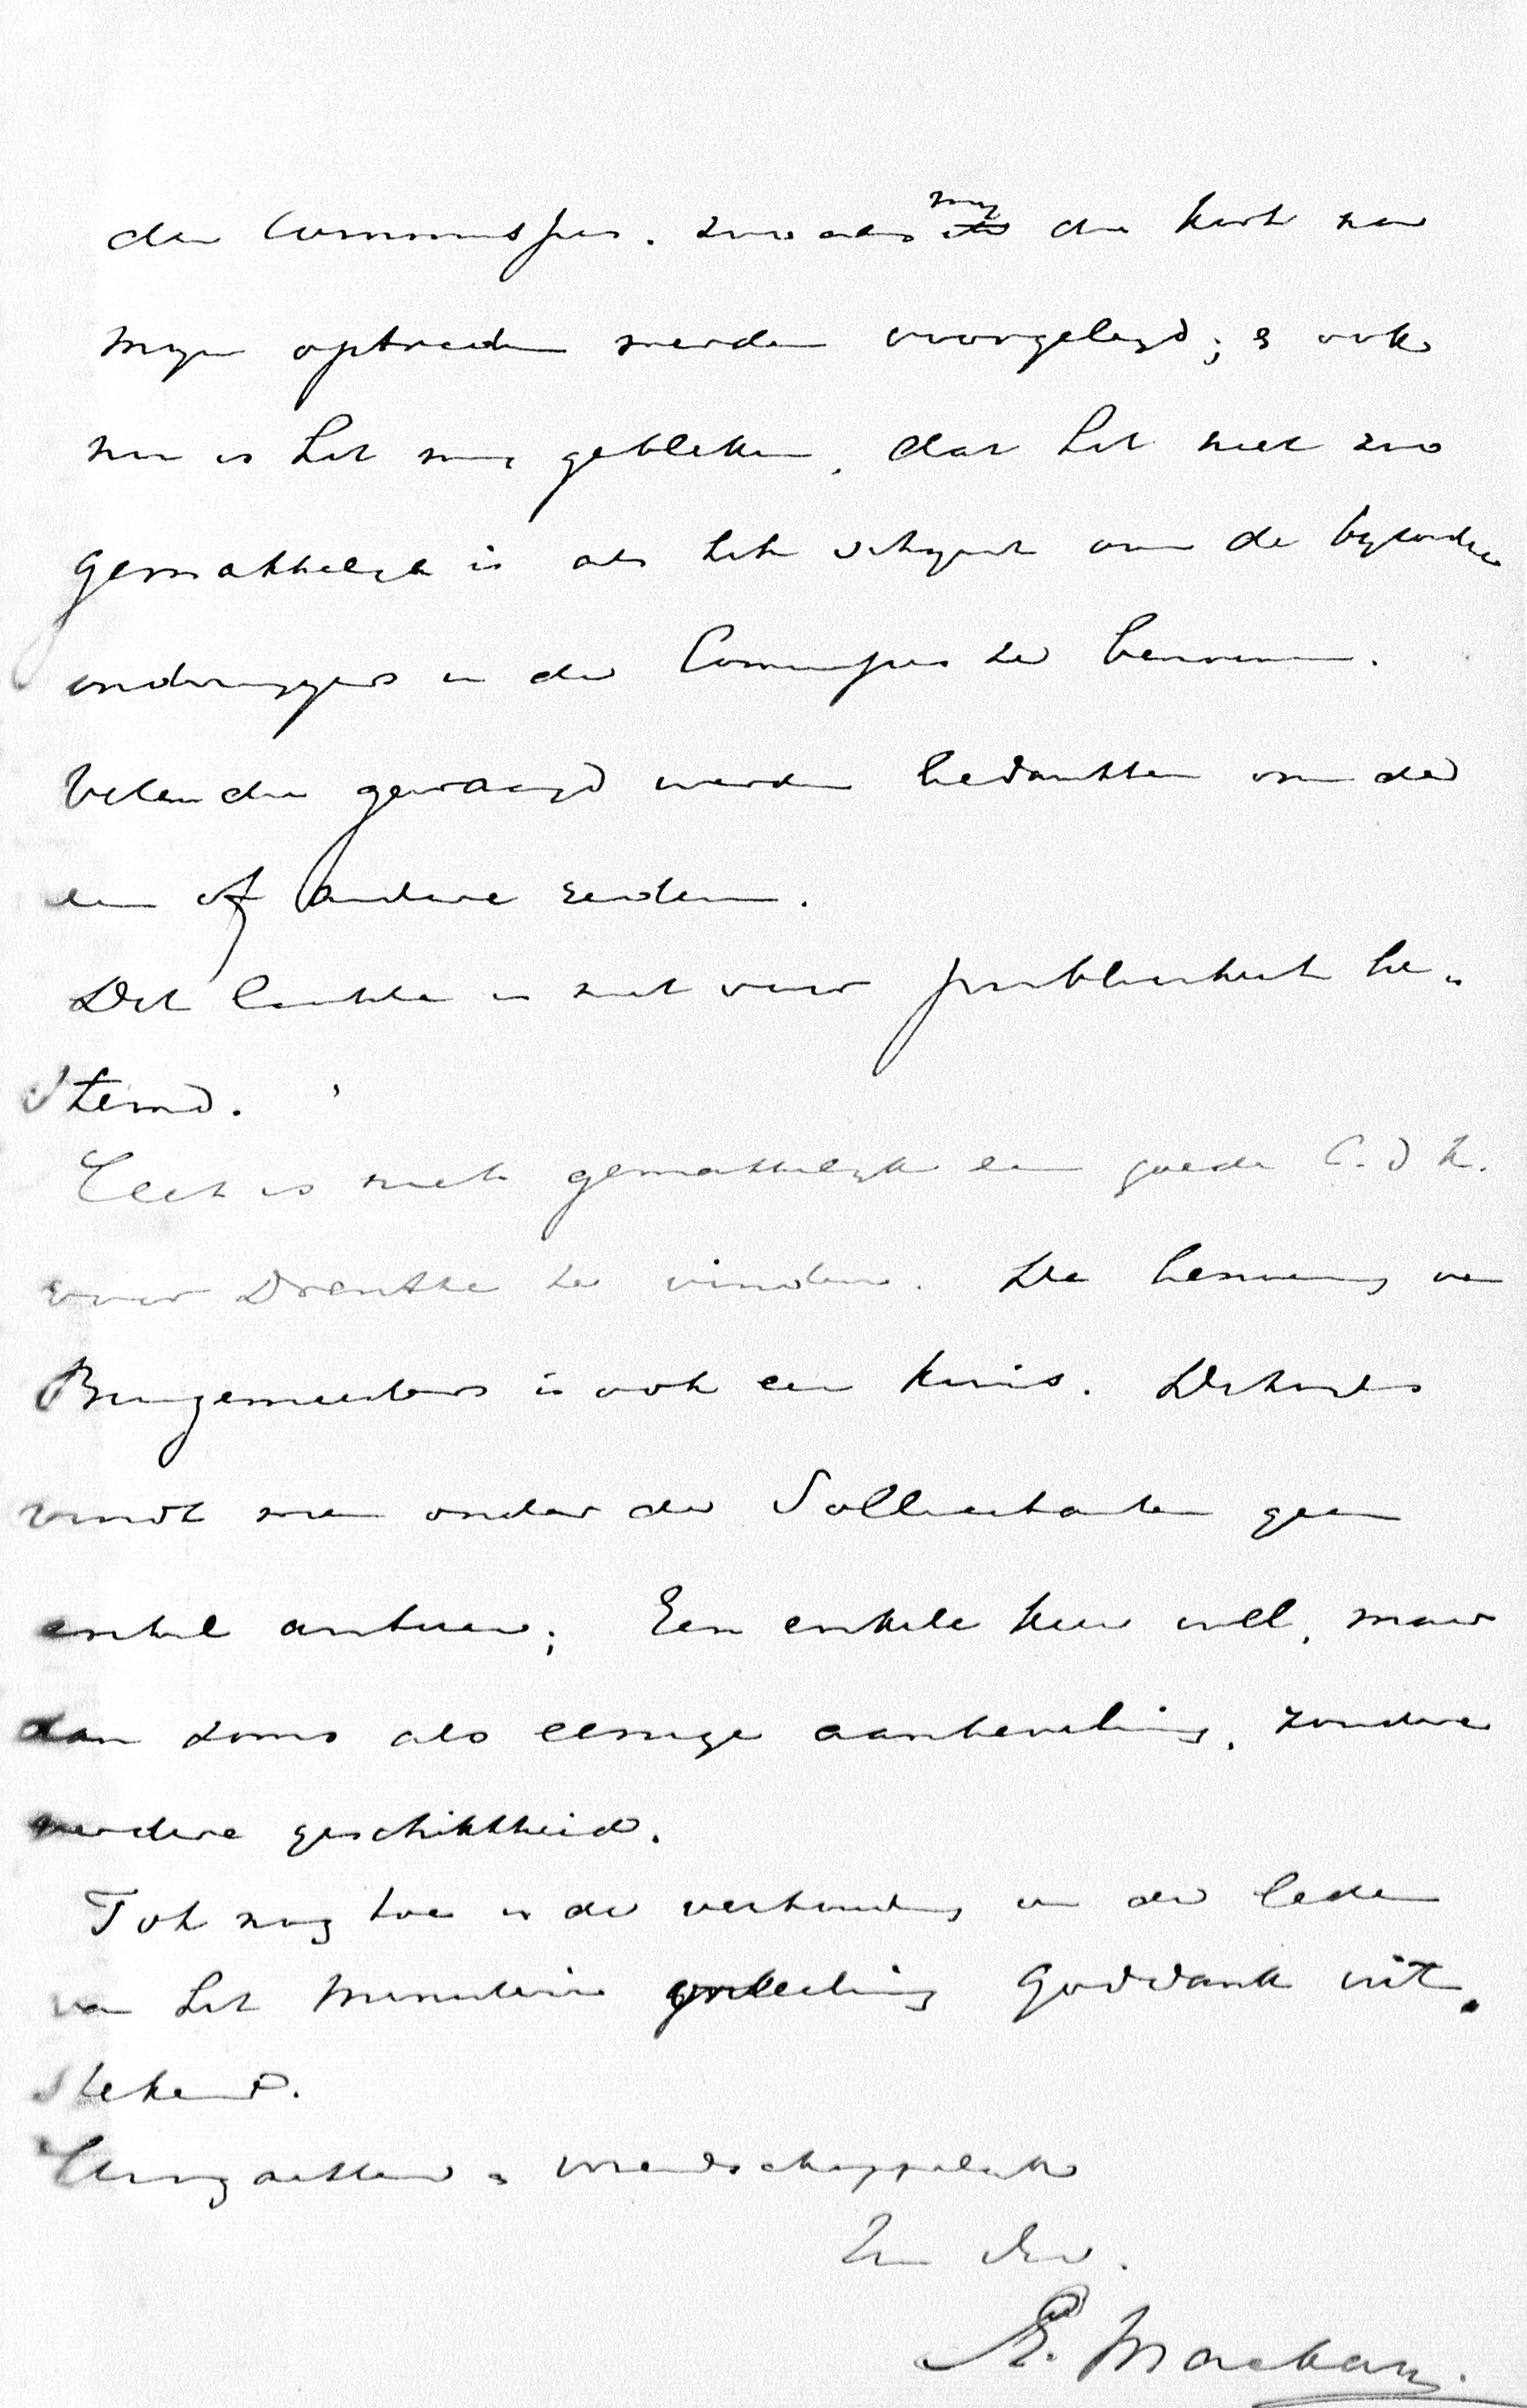 der Commissies. zooals mij die kort na
mijn optreden werden voorgelegd; & ook
nu is het mij gebleken, dat het niet zoo
gemakkelijk is als het schijnt om de bijzondere
onderwijzers in de Commissies te benoemen.
Velen die gevraagd werden bedankten om de
een of andere reden.
Dit laatste is niet voor publiciteit be„
stemd.
Het is niet gemakkelijk een goede C. d K.
voor Drenthe te vinden. De benoeming van
Burgemeesters is ook een kruis. Dikwijls
vindt men onder de Sollicitanten geen
enkel antirev; Een enkele keer wel, maar
dan soms als eenige aanbeveling, zonder
verdere geschiktheid.
Tot nog toe is de verhouding van de leden
van het Ministerie onderling Goddank uit„
stekend.
Hoogachtend & vriendschappelijk
Uw dw.
Æ. Mackay.